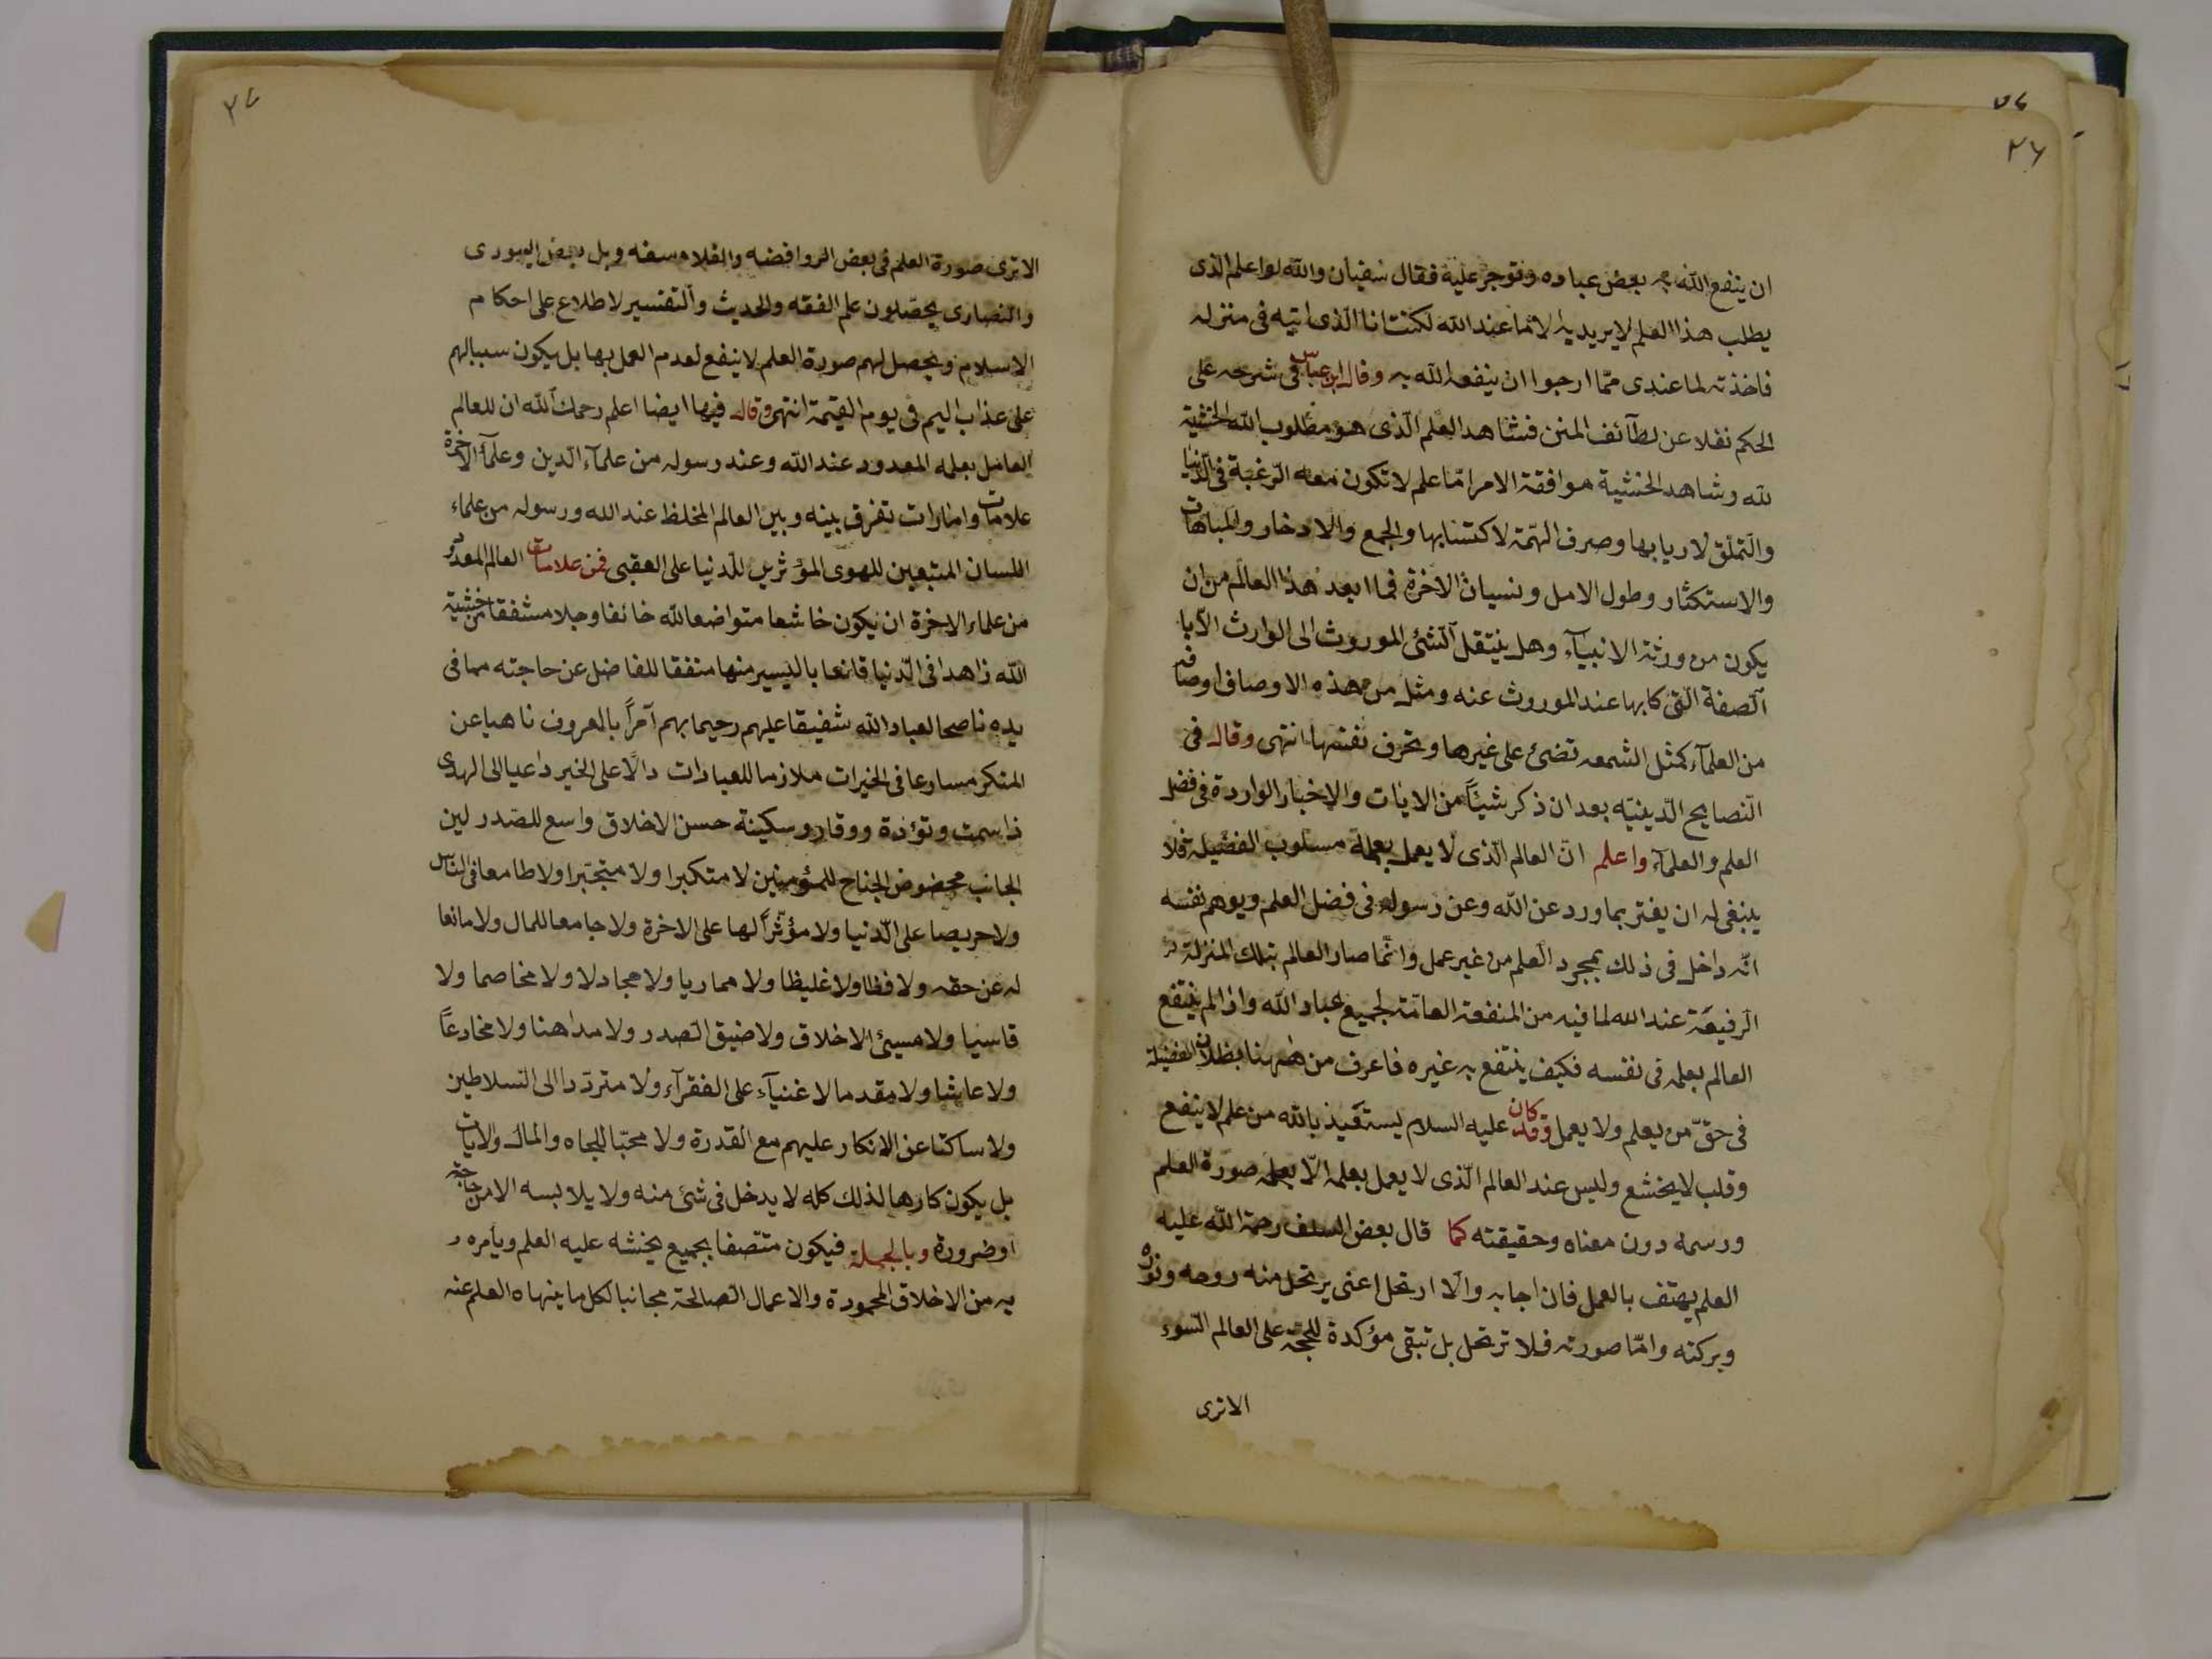 ٢٦
ان ينفع الله به بعض عباده وتوجر عليه فقال سفيان والله لو اعلم الذى
يطلب هذا العلم لا يريد به الا ما عند الله لكنت انا الّذى اتيه فى منزله
فاخذته لما عندى ممّا ارجوا ان ينفعه الله به وقال ابن عباس فى شرحه على
الحكم نقلا عن لطآئف المنن فشاهد العلم الّذى هو مطلوب الله الخشية
لله وشاهد الخشية موافقة الامر امّا علم لا تكون معه الرّغبة فى الدّنيا
والتملّق لاربابها وصرف الهمّة لاكتسابها والجمع والادخار والمباهات
والاستكثار وطول الامل ونسيان الاخرة فما ابعد هذا العالم من ان
يكون من ورثة الانبيآء وهل ينتقل الشئ الموروث الى الوارث الّا با
لصفة الّتى كا بها عند الموروث عنه ومثل من هذه الاوصاف اوصافه
من العلمآء كمثل الشمعه تضئ على غيرها وتحرق نفسها انتهى وقال فى
النّصايح الدّينيّه بعد ان ذكر شيئاً من الايات والاخبار الواردة فى فضل
العلم والعلمآء واعلم انّ العالم الّذى لا يعمل بعلمه مسلوب الفضيله فلا
ينبغى له ان يغتر بما ورد عن الله وعن رسوله فى فضل العلم ويوهم نفسه
انّه داخل فى ذلك بمجرد العلم من غير عمل وانّما صار العالم بتلك المنزلة
الرفيعة عند الله لما فيه من المنفعة العامّة لجميع عباد الله واذا لم ينتفع
العالم بعلمه فى نفسه فكيف ينتفع به غيره فاعرف من ههنا بطلان الفضيلة
فى حقّ من يعلم ولا يعمل وقد كان عليه السلام يستعيذ بالله من علم لا ينفع
وقلب لا يخشع وليس عند العالم الّذى لا يعمل بعلمه الّا بعلمه صورة العلم
ورسمه دون معناه وحقيقته كما قال بعض السلف رحمة الله عليه
العلم يهتف بالعمل فان اجابه والّا ارتحل اعنى يرتحل منه روحه ونوره
وبركته وامّا صورته فلا ترتحل بل تبقى مؤكدة للحجّة على العالم السّوء
الا ترى
٢٧
الا ترى صورة العلم فى بعض الروافضه والفلاسفه وبل بعض اليهودى
والنصارى يحصّلون علم الفقه والحديث والتفسير لاطلاع على احكام
الاسلام ويحصل لهم صورة العلم لا ينفع لعدم العمل بها بل يكون سببا لهم
على عذاب اليم فى يوم القيمة انتهى وقال فيها ايضا اعلم رحمك الله ان للعالم
العامل بعلمه المعدود عند الله وعند رسوله من علمآء الدين وعلمآء الاخرة
علامات وامارات تفرق بينه وبين العالم المخلط عند الله ورسوله من علماء
اللسان المتبعين للهوى المؤثرين للدّنيا على العقبى فمن علامات العالم المعدود
من علماء الاخرة ان يكون خاشعا متواضعا لله خائفا وجلا مشفقا من خشية
الله زاهدا فى الدّنيا قانعا باليسير منها منفقا للفاضل عن حاجته مما فى
يده ناصحا لعباد الله شفيقا عليهم رحيما بهم آمراً بالعروف ناهيا عن
المنكر مسارعا فى الخيرات ملازما للعبادات دالّا على الخير داعيا الى الهدى
ذا سمت وتؤدة ووقار وسكينة حسن الاخلاق واسع للصّدر لين
الجانب محضوض الجناح للمؤمنين لا متكبرا ولا متجبّرا ولا طامعا فى النّاس
ولا حريصا على الدّنيا ولا مؤثّراً لها على الاخرة ولا جامعا للمال ولا مانعا
له عن حقه ولا فظا ولا غليظا ولا مماريا ولا مجادلا ولا مخاصما ولا
قاسيا ولا مسيئ الاخلاق ولا ضيق الصدر ولا مداهنا ولا مخادعاً
ولا عابثا ولا مقدما لاغنيآء على الفقرآء ولا متردّدا الى السّلاطين
ولا ساكتا عن الانكار عليهم مع القدرة ولا محبّا للجاه والمال والايات
بل يكون كارها لذلك كله لا يدخل فى شئ منه ولا يلابسه الا من حاجة
او ضرورة وبالجملة فيكون متّصفا بجميع يخشه عليه العلم ويأمره
به من الاخلاق المحمودة والاعمال الصالحة مجانبا لكل ما ينهاه العلم عنه